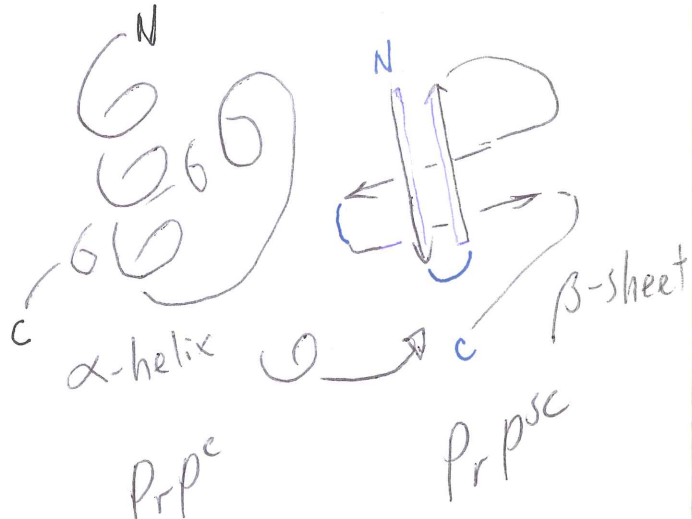 N
N
C
α-helix
C
β-sheet
Prpᶜ
Prpˢᶜ